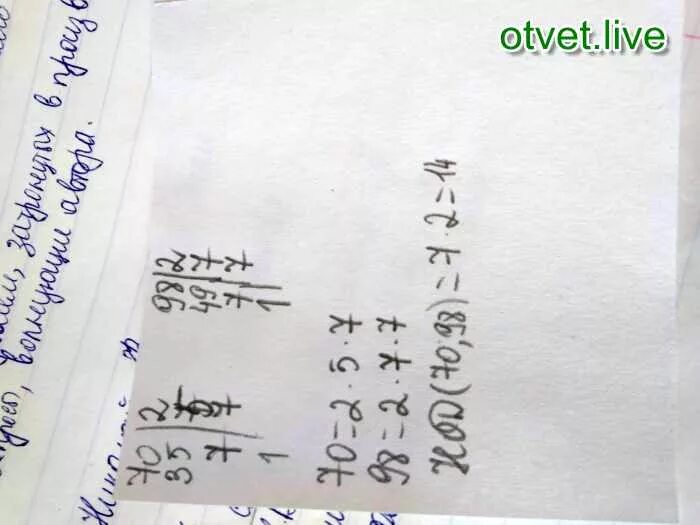 otvet.live
затронутых в произв
волнующие автора.
70|2
35|5
7|7
1
98|2
49|7
7|7
1|
70=2·5·7
98=2·7·7
НОД(70,98)=7·2=14